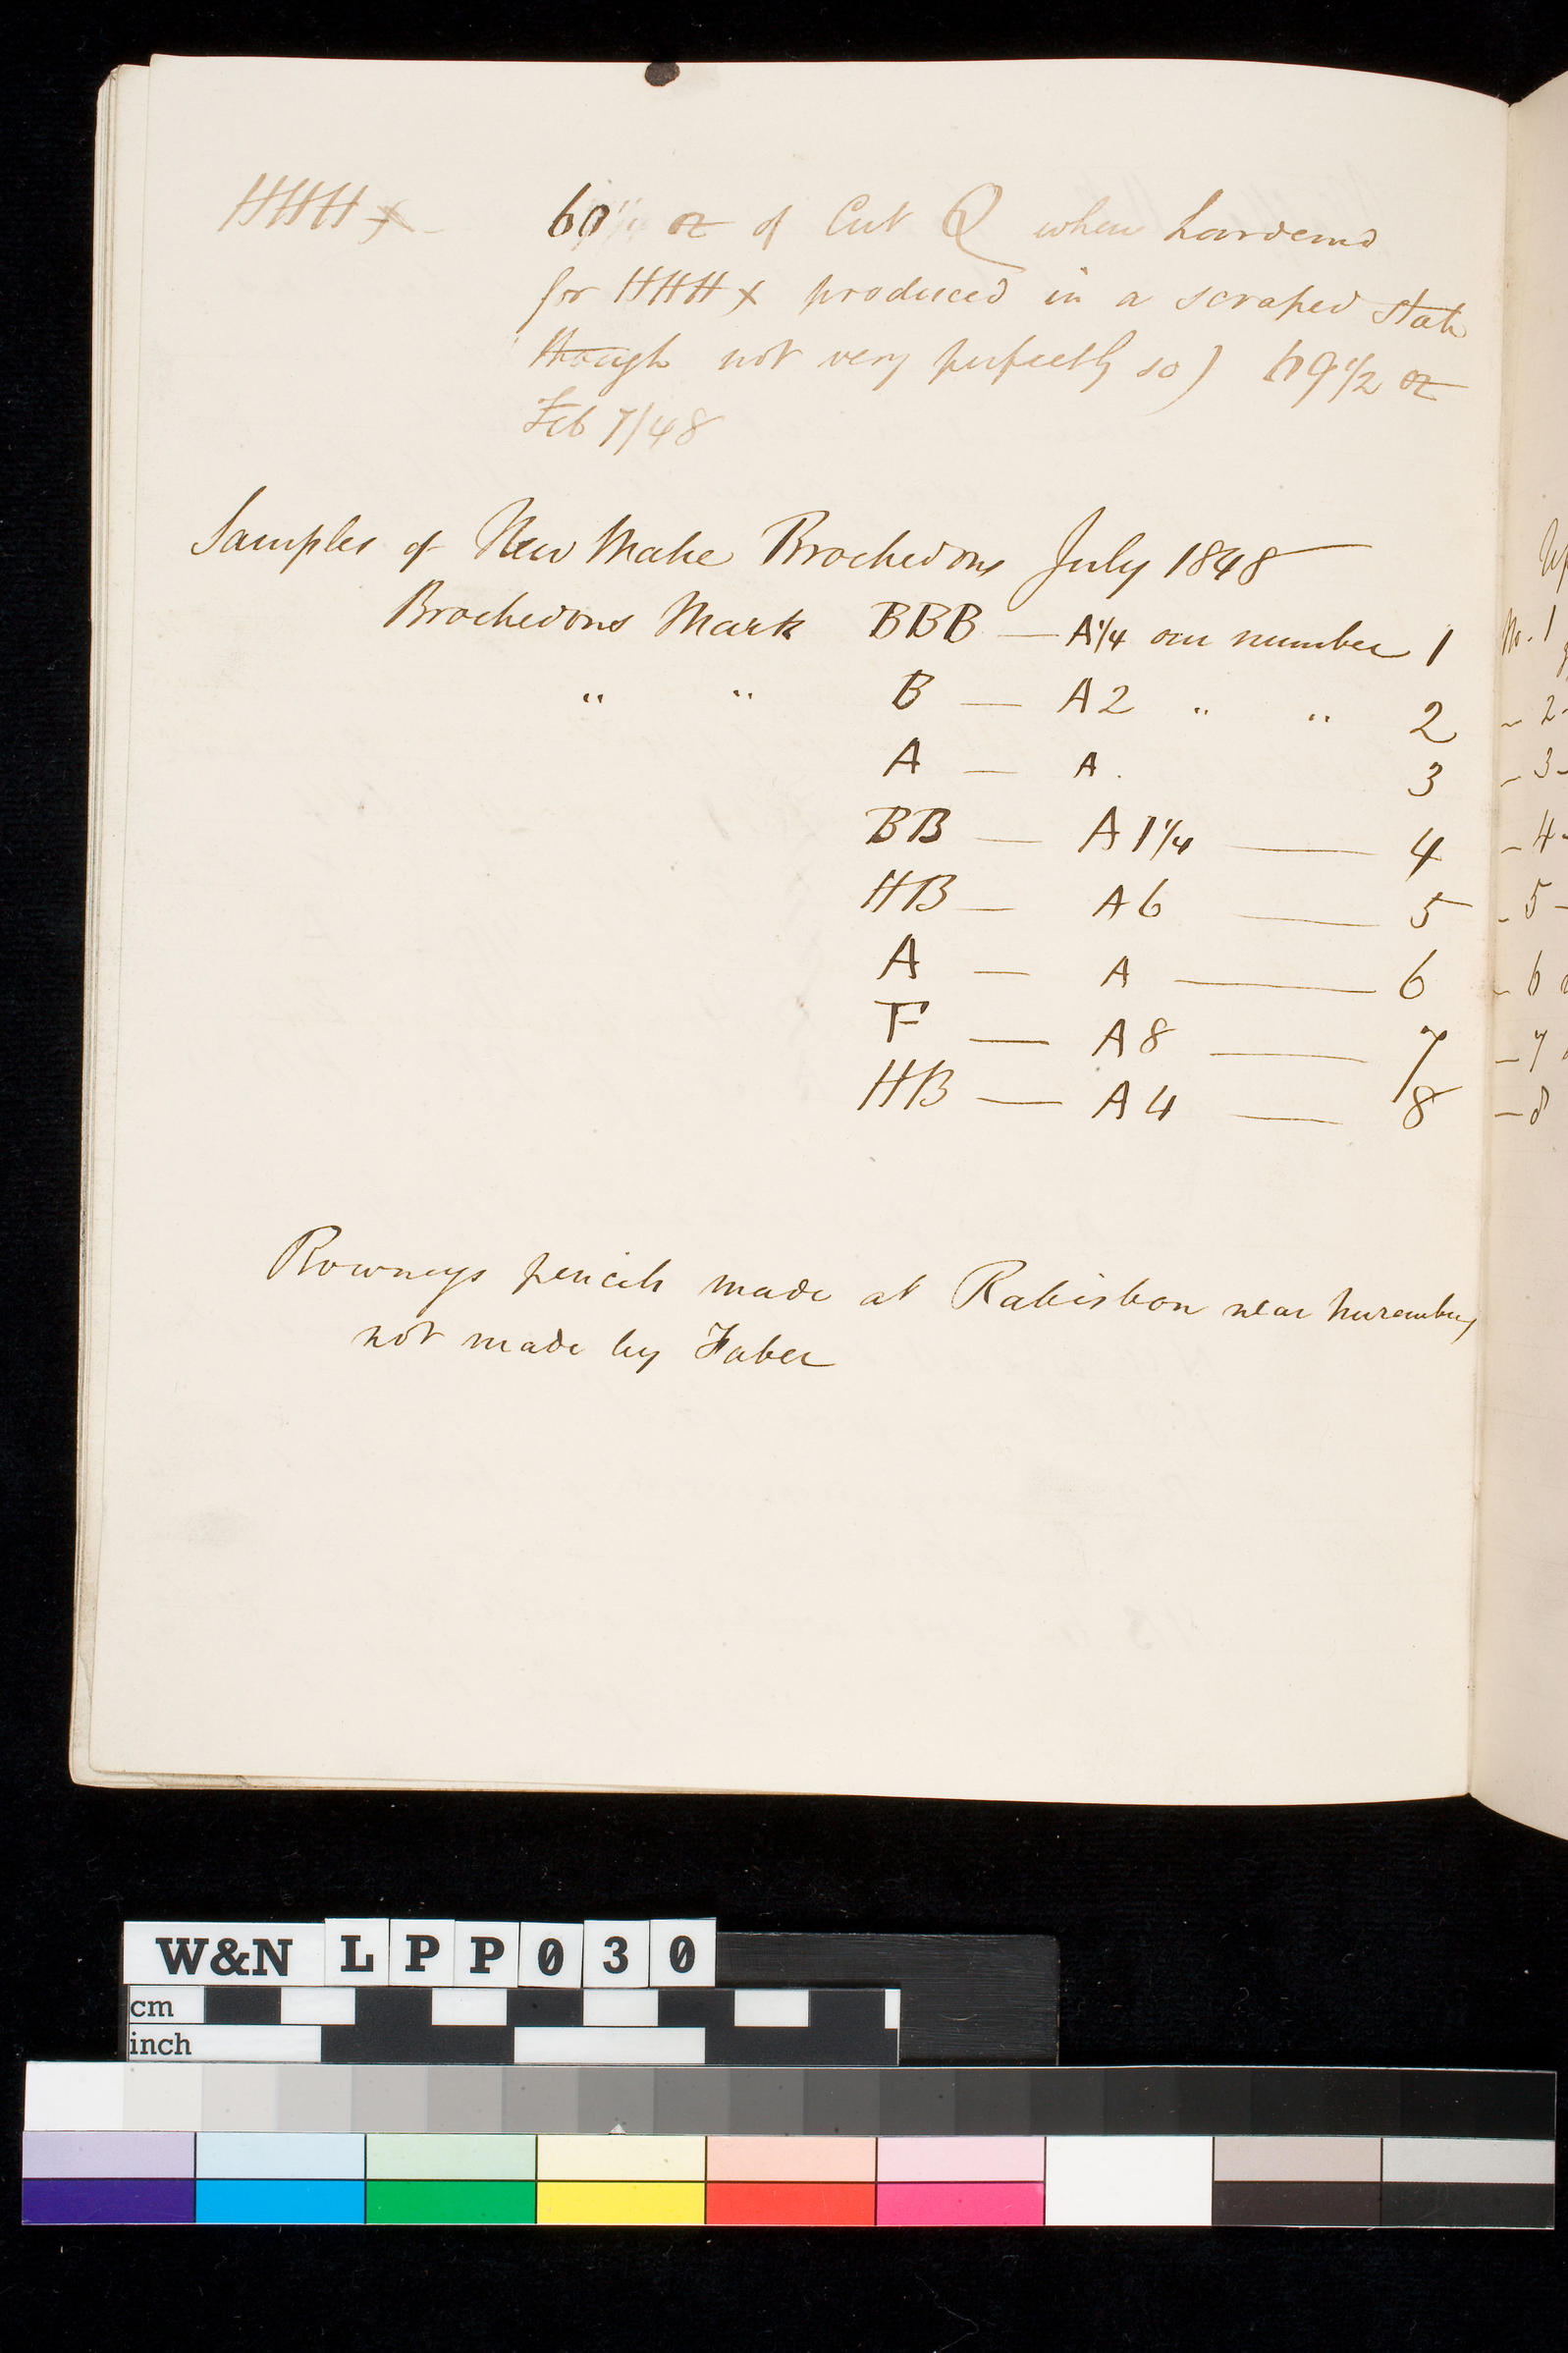 HHHH x
60 oz of Cut Q when hardened
for HHHH x produced in a scraped state
though not very perfectly so) 69 1/2 oz
Feb 7/48
Samples of New Make Brockedons July 1848
Brockedons Mark BBB — A 1/4 our number 1
" " B — A 2 " " 2
A — A. 3
BB — A 1 1/4 — 4
HB — A 6 — 5
A — A — 6
F — A 8 — 7
HB — A 4 — 8
Rowneys pencils made at Ratisbon near Nuremburg
not made by Faber
No. 1
- 2 -
- 3 -
- 4 -
- 5 -
- 6
- 7
- 8
W&N LPP030
cm
inch